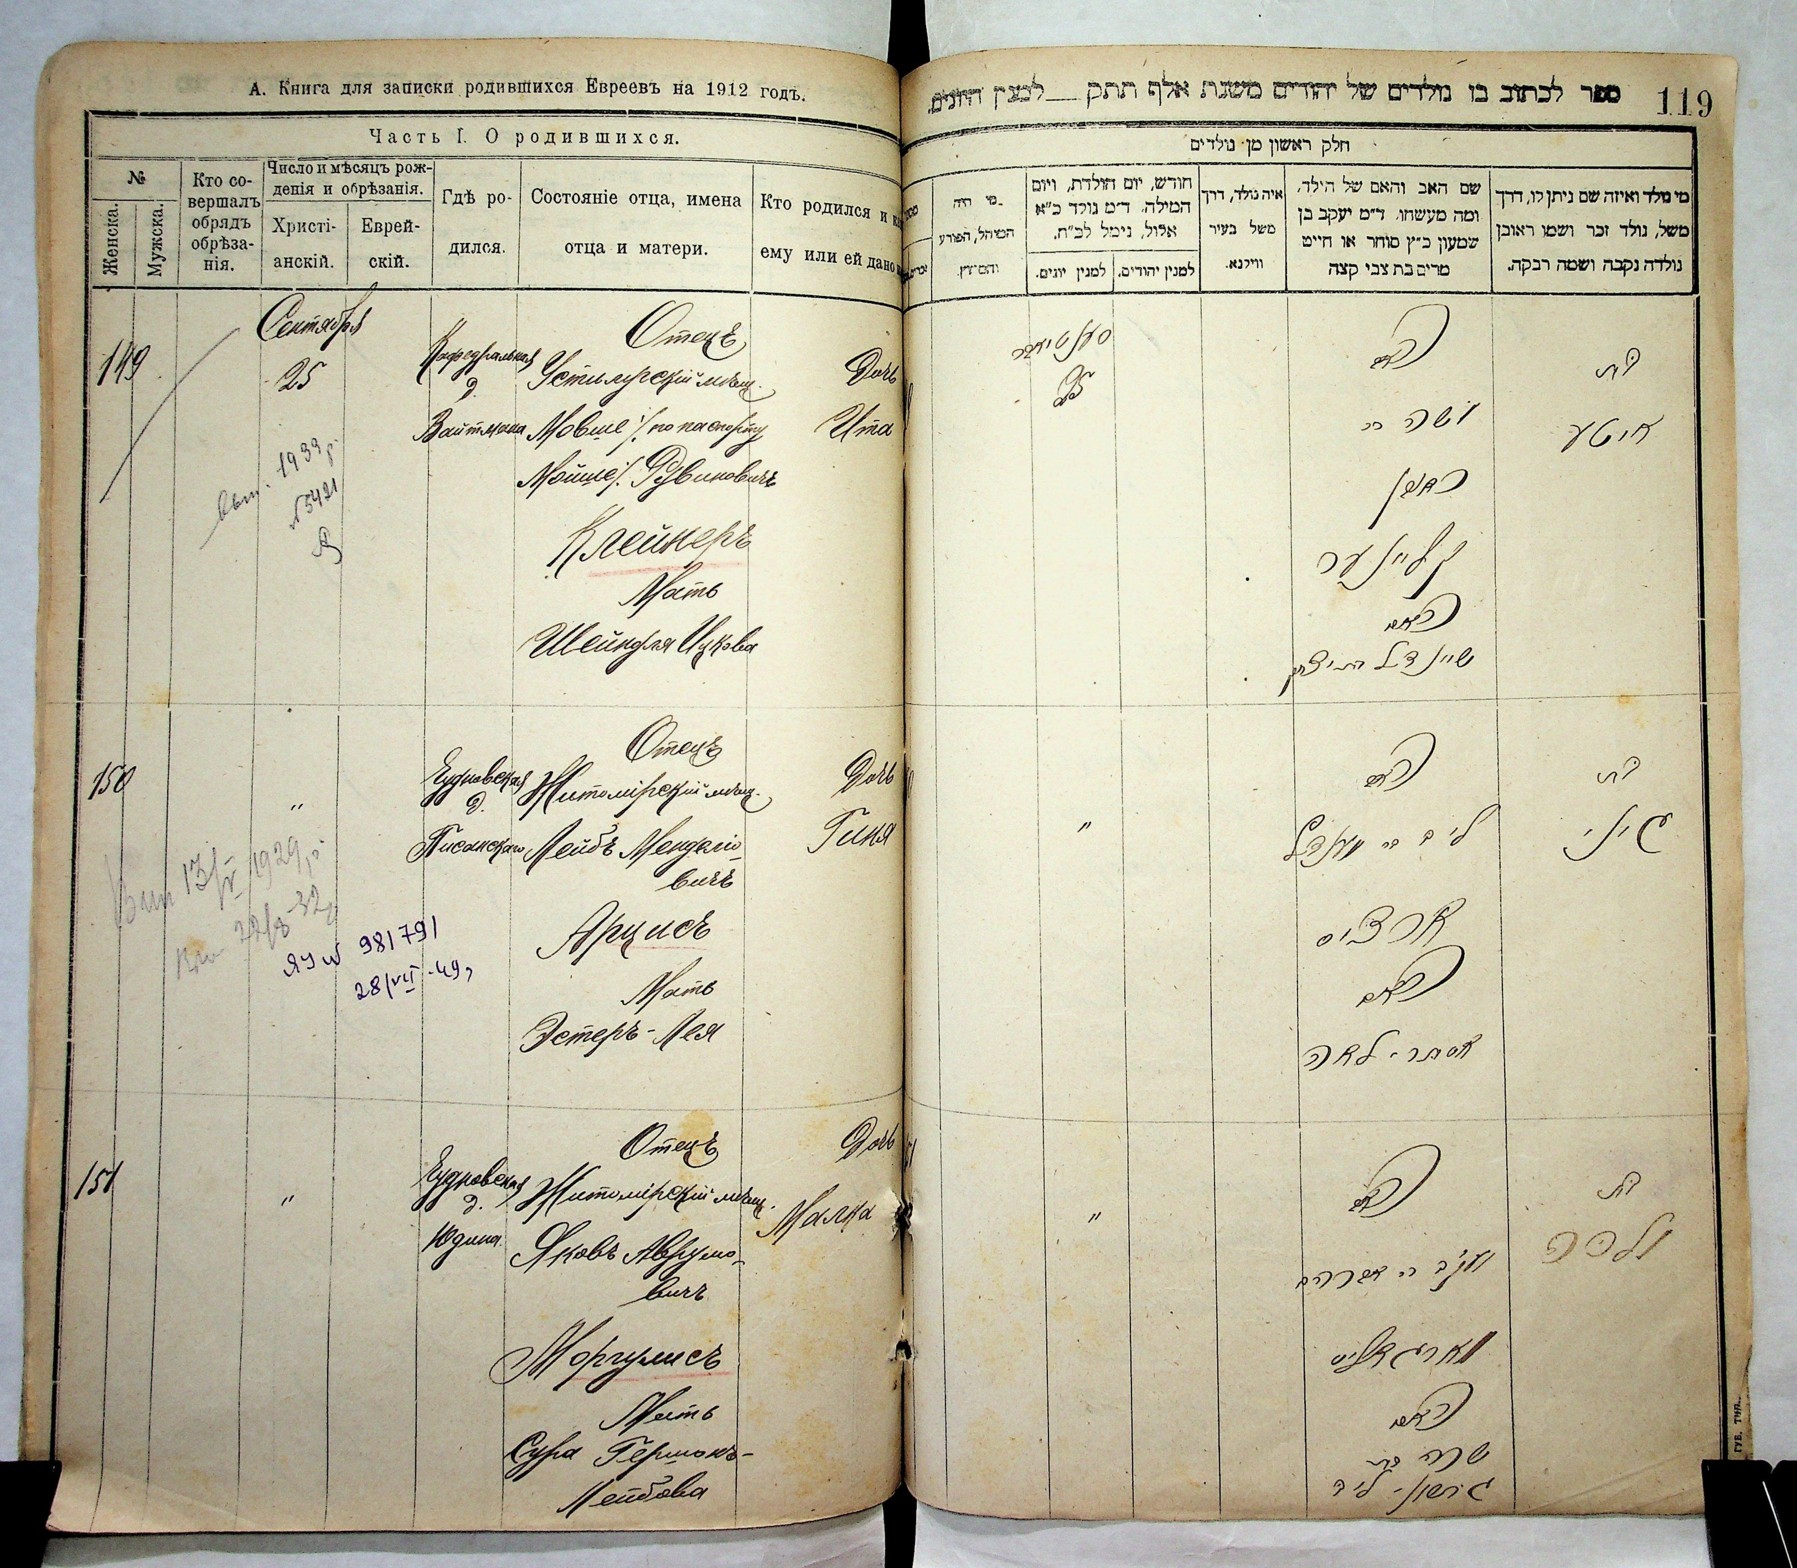 А. Книга для записки родившихся Евреевъ на 1912 годъ.
Часть I. О родившихся.
№
Женска.
Мужска.
Кто со-
вершалъ
обрядъ
обрѣза-
нія.
Число и мѣсяцъ рож-
денія и обрѣзанія.
Христі-
анскій.
Еврей-
скій.
Гдѣ ро-
дился.
Состояніе отца, имена
отца и матери.
Кто родился и
ему или ей дано
149
Сентября
25
Кафедральная
д.
Вайтмана
Отецъ
Устилугскій мѣщ.
Мовше /по паспорту
Мойше/. Рувиновичъ
Клейнеръ
Мать
Шейндля Ицкова
Дочь
Ита
1933 г.
№5421
150
"
Чудновская
д.
Писанскаго
Отецъ
Житомірскій мѣщ.
Лейбъ Менделіо-
вичъ
Арцисъ
Мать
Эстеръ-Лея
Дочь
Гиня
13/V 1929 г.
ЯУ № 981791
28/VII-49 г
151
"
Чудновская
д.
Юдина
Отецъ
Житомірскій мѣщ.
Яковъ Аврумо-
вичъ
Моргулисъ
Мать
Сура Гершонъ-
Лейбова
Дочь
Малка
ספר לכתוב בו נולדים של יהודים משנת אלף תתק למנין היונים.
119
חלק ראשון מן נולדים
מי היה
המוהל, הפורע
חודש, יום הולדת, ויום
המילה. ד״מ נולד כ״א
אלול, נימל לכ״ח.
למנין יונים.
למנין יהודים.
איה נולד, דרך
משל בעיר
ווילנא.
שם האב והאם של הילד,
ומה מעשהו. ד״מ יעקב בן
שמעון כ״ץ סוחר או חייט
מרים בת צבי קצה
מי נולד ואיזה שם ניתן לו, דרך
משל, נולד זכר ושמו ראובן
נולדה נקבה ושמה רבקה.
סענטיאבר
25
האב
משה ר׳
ראובן
קליינער
האם
שיינדל בת יצחק
בת
איטע
"
האב
ליב ר׳ מענדל
ארציס
האם
אסתר-לאה
בת
גיני
"
האב
יעקב ר׳ אברהם
מארגאליס
האם
שרה בת
גרשון-ליב
בת
מלכה
ГУБ. ТИП.